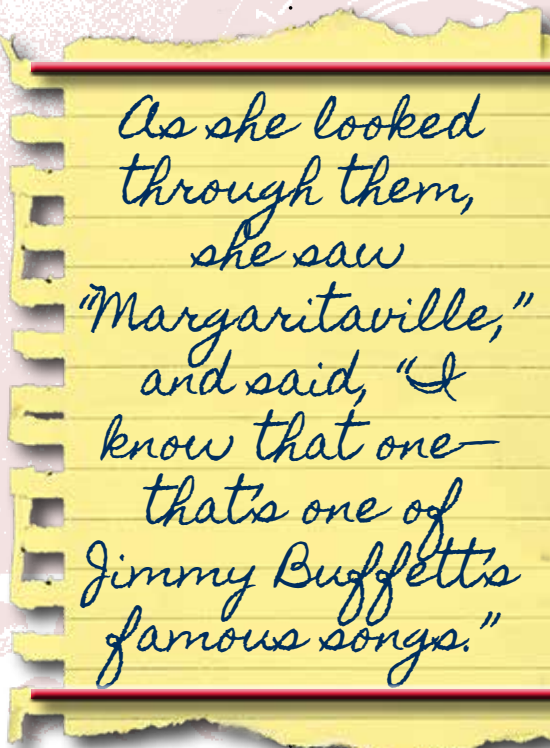 As she looked
through them,
she saw
"Margaritaville,"
and said, "I
know that one—
that's one of
Jimmy Buffett's
famous songs."